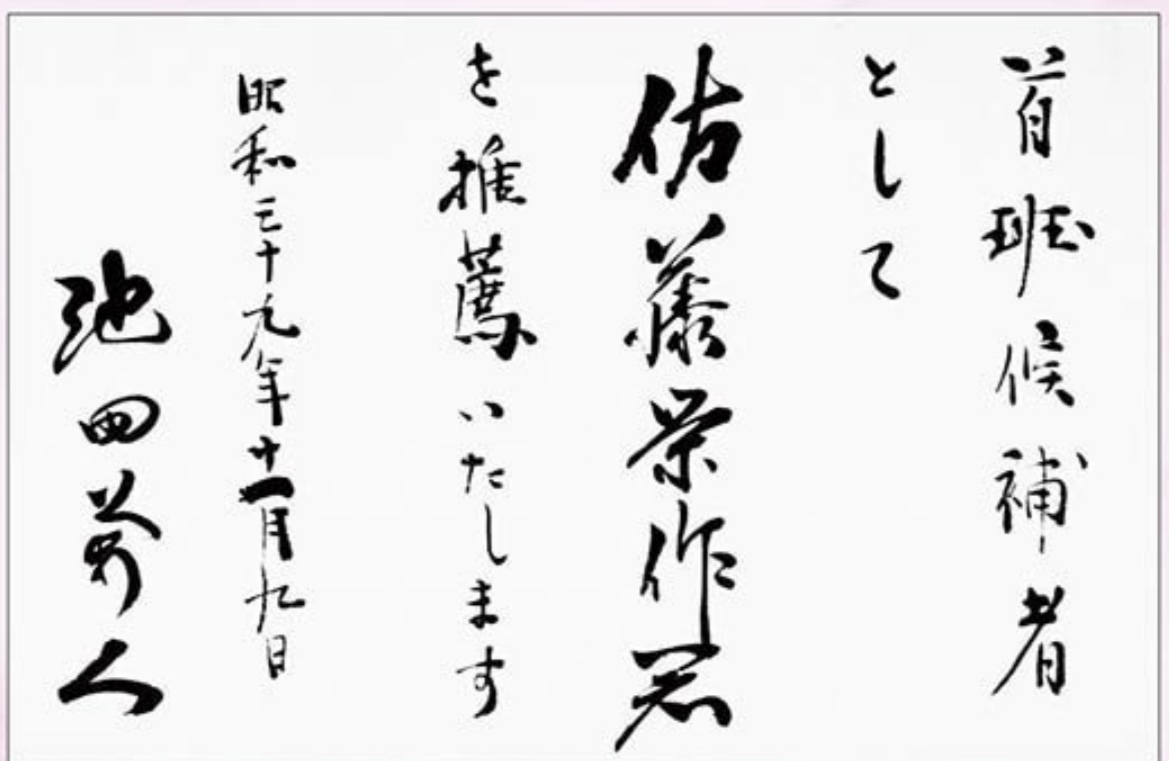 首班候補者
として
佐藤栄作君
を推薦いたします
昭和三十九年十一月九日
池田勇人